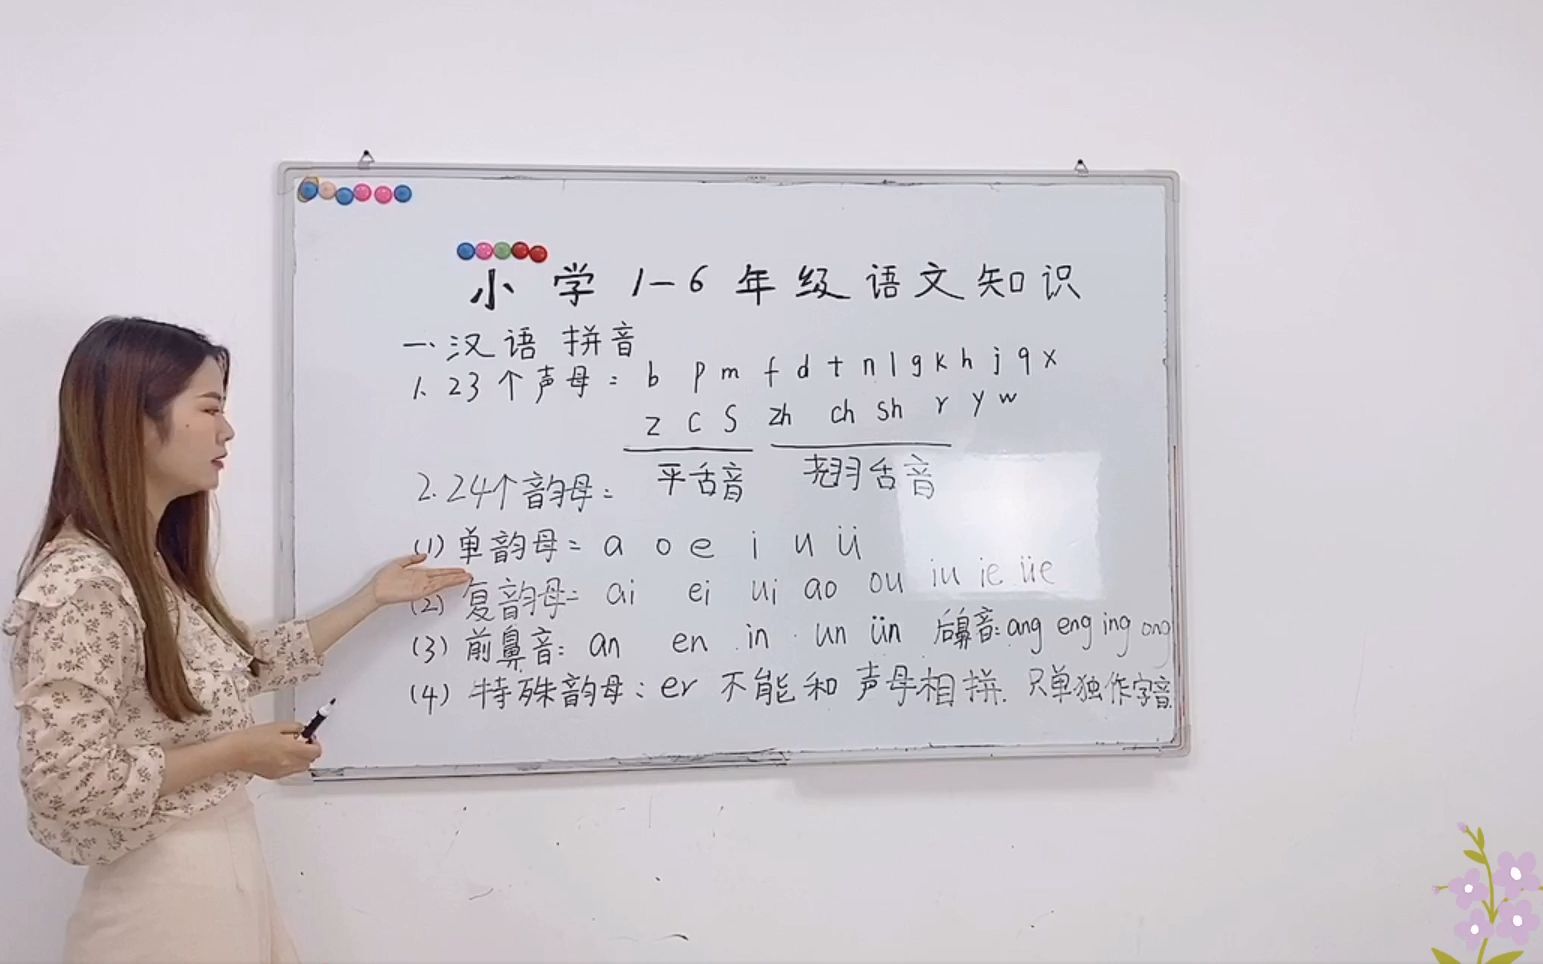 小学1-6年级语文知识
一、汉语拼音
1. 23个声母: b p m f d t n l g k h j q x
z c s zh ch sh r y w
平舌音 翘舌音
2. 24个韵母:
(1) 单韵母: a o e i u ü
(2) 复韵母: ai ei ui ao ou iu ie üe
(3) 前鼻音: an en in un ün 后鼻音: ang eng ing ong
(4) 特殊韵母: er 不能和声母相拼. 只单独作字音